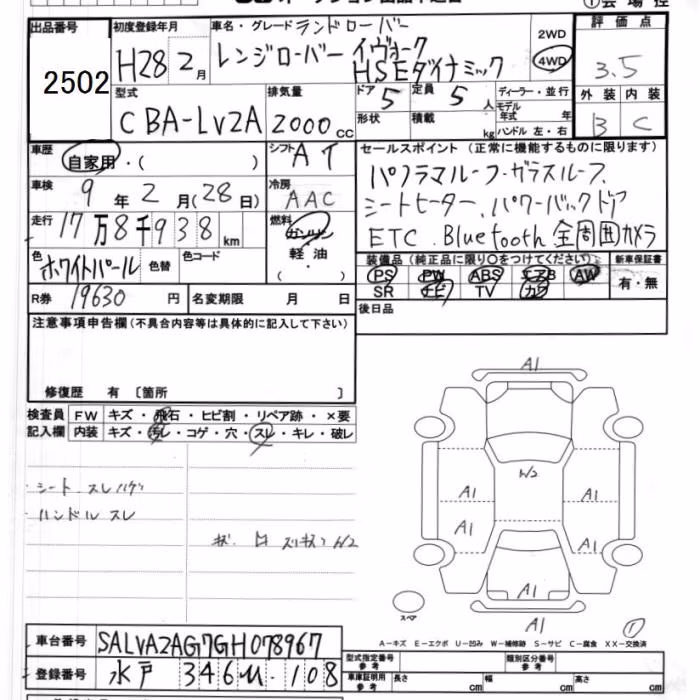 出品番号 初度登録年月 車名・グレード ランドローバー ①会場控
2502 H28 2月 レンジローバー イヴォーク 2WD 評価点
HSEダイナミック 4WD 3.5
型式 排気量 ドア 定員 ディーラー・並行 外装 内装
CBA-LV2A 2000cc 5 5人 モデル年式 年 B C
形状 積載 kg ハンドル 左・右
車歴 自家用・( ) シフト AT セールスポイント (正常に機能するものに限ります)
車検 9年2月(28日) 冷房 AAC パノラマルーフ・ガラスルーフ、
走行 17万8千938km 燃料 ガソリン シートヒーター、パワーバックドア
色 ホワイトパール 色替 色コード 軽油・( ) ETC.Bluetooth 全周囲カメラ
装備品(純正品に限り〇をつけてください) 新車保証書
PS PW ABS エアB AW 有・無
SR ナビ TV カワ
R券 19630円 名変期限 月 日
注意事項申告欄(不具合内容等は具体的に記入して下さい) 後日品
修復歴 有 〔箇所 〕
検査員 FW キズ・飛石・ヒビ割・リペア跡・×要
記入欄 内装 キズ・汚レ・コゲ・穴・スレ・キレ・破レ
A1
W2
・シート スレ
A1 A1
・ハンドル スレ
A1 A1
スペア
A1 ①
A-キズ E-エクボ U-凹み W-補修跡 S-サビ C-腐食 XX-交換済
車台番号 SALVA2AG7GH078967
型式指定番号 参考 類別区分番号 参考
登録番号 水戸 346 108
車庫証明用 参考 長さ cm 幅 cm 高さ cm